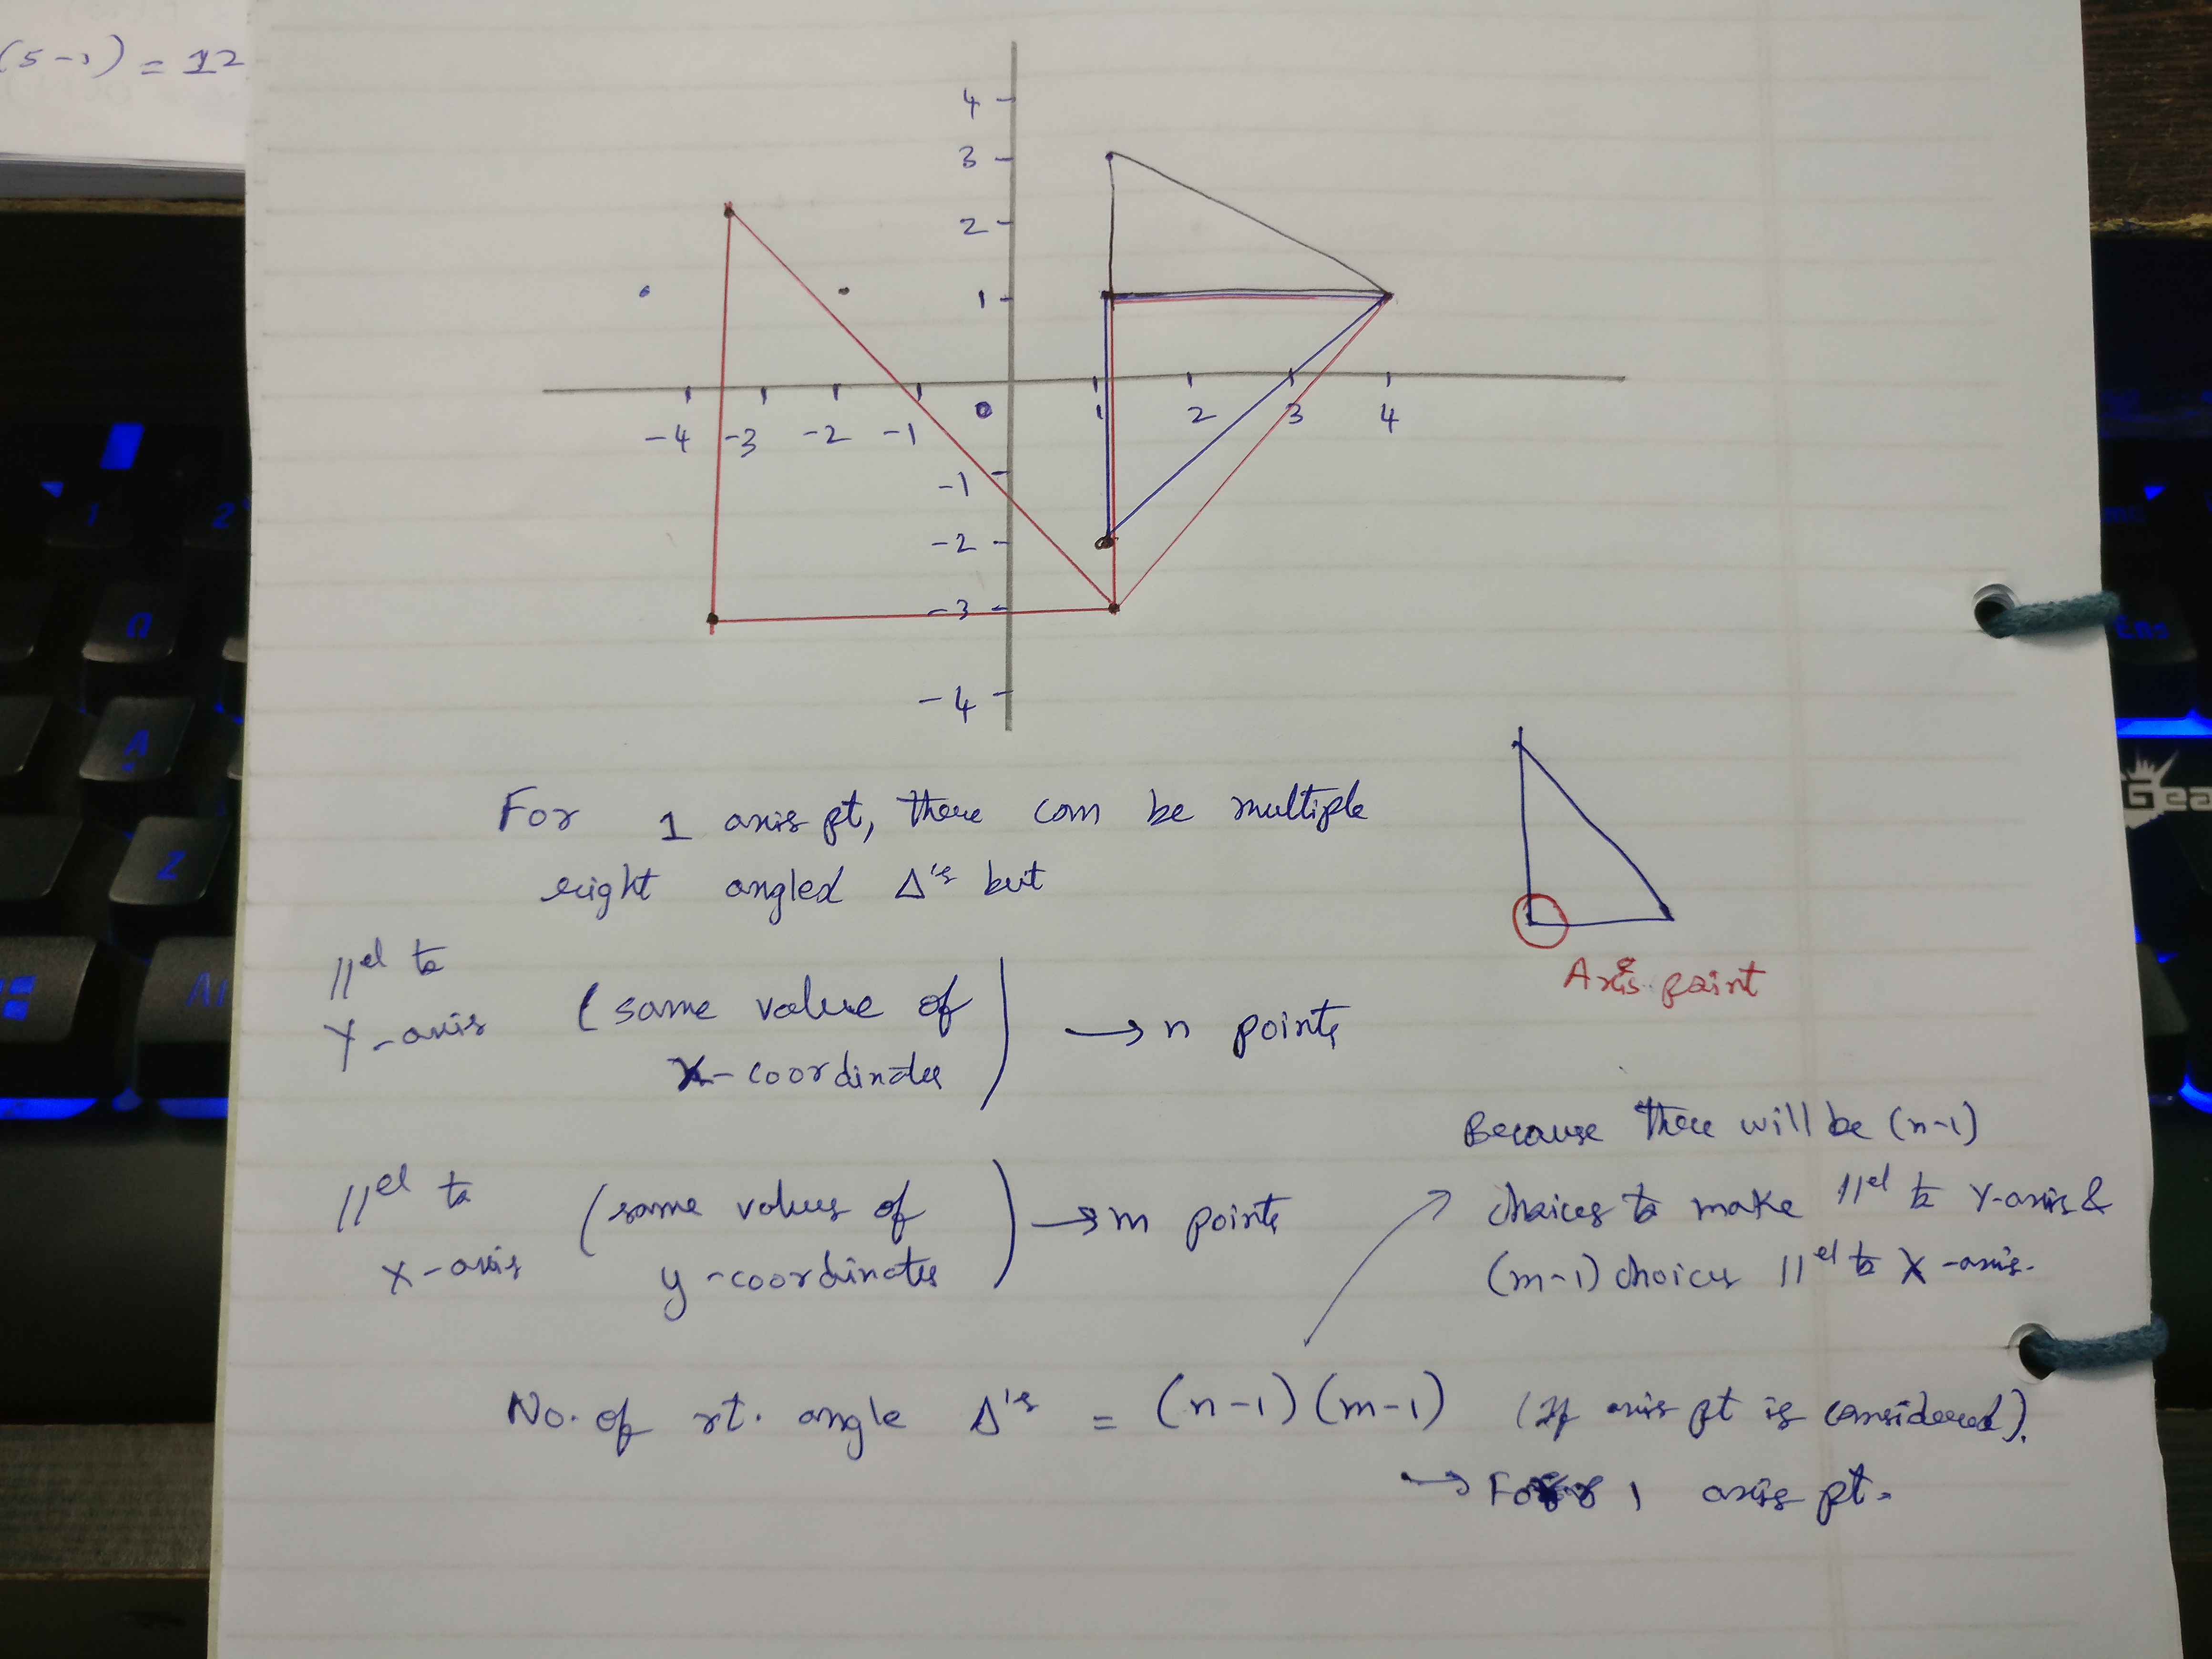 (5-1) = 12
4
3
2
1
-4 -3 -2 -1 0 1 2 3 4
-1
-2
-3
-4
For 1 axis pt, there can be multiple
right angled Δ's but
Axis point
||el to
Y-axis
(same value of
x-coordinates)
→ n points
||el to
X-axis
(same values of
y-coordinates)
→ m points
Because there will be (n-1)
choices to make ||el to Y-axis &
(m-1) choices ||el to X-axis.
No. of rt. angle Δ's = (n-1) (m-1) (If axis pt is considered).
→ For 1 axis pt.
1
2
Q
A
Z
Ens
Gea